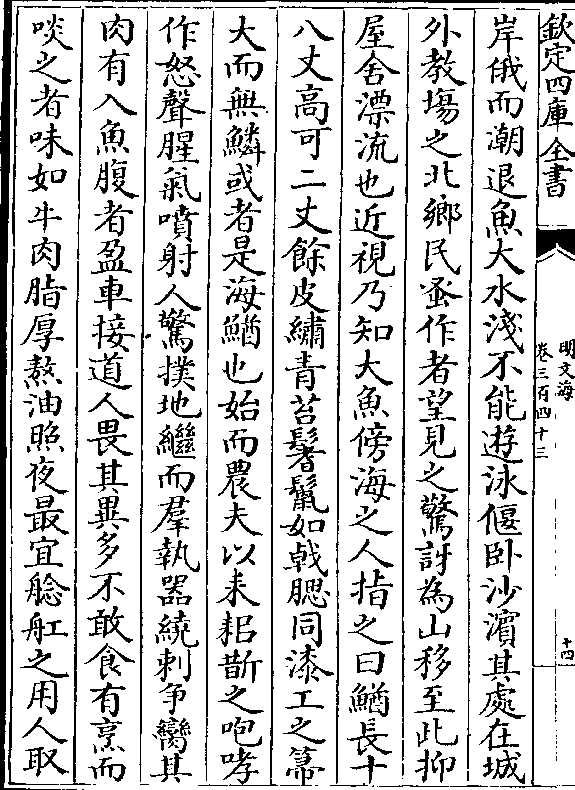 欽定四庫全書
明文海
卷三百四十三
十四
岸俄而潮退魚大水淺不能遊泳偃卧沙濵其處在城
外教塲之北鄉民蚤作者望見之驚訝為山移至此抑
屋舍漂流也近視乃知大魚傍海之人指之曰鰌長十
八丈高可二丈餘皮繡青苔髾鬛如戟腮同漆工之篛
大而無鱗或者是海鰌也始而農夫以耒耜斮之咆哮
作怒聲腥氣噴射人驚撲地繼而羣執器繞刺争臠其
肉有入魚腹者盈車接道人畏其異多不敢食有烹而
啖之者味如牛肉脂厚熬油照夜最宜艌舡之用人取